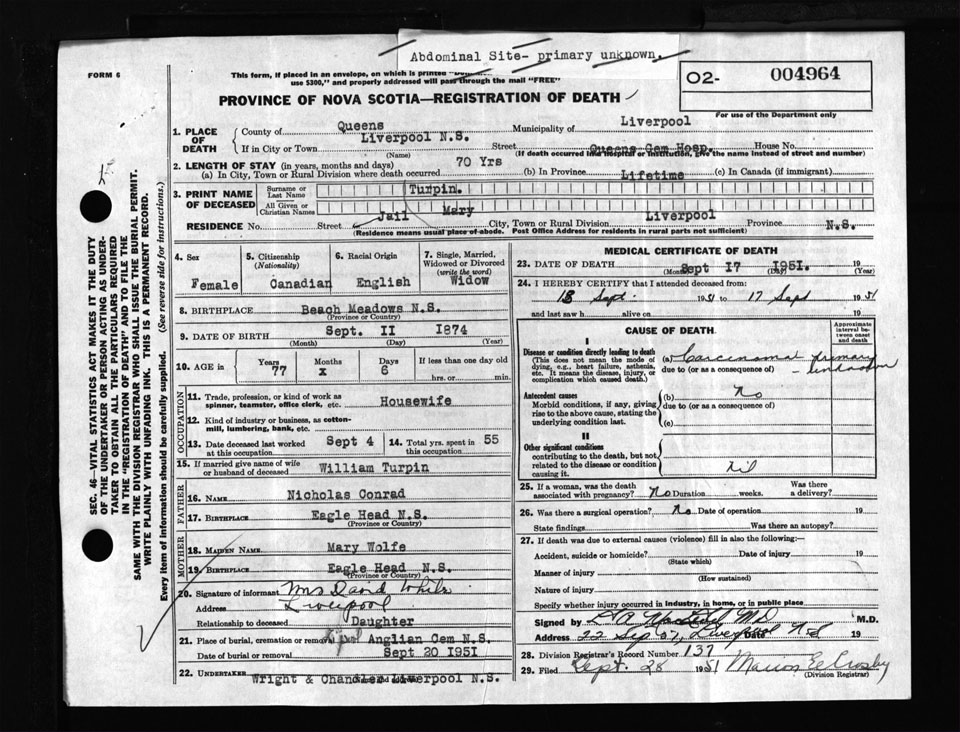 Abdominal Site- primary unknown.
FORM 6
This form, if placed in an envelope, on which is printed
use $300," and properly addressed will pass through the mail "FREE"
O2- 004964
PROVINCE OF NOVA SCOTIA—REGISTRATION OF DEATH
For use of the Department only
1. PLACE OF DEATH
County of Queens Municipality of Liverpool
If in City or Town Liverpool N.S. Street Queens Gem Hosp. House No.
(Name) (If death occurred in a hospital or institution, give the name instead of street and number)
2. LENGTH OF STAY (in years, months and days)
(a) In City, Town or Rural Division where death occurred 70 Yrs (b) In Province Lifetime (c) In Canada (if immigrant)
3. PRINT NAME OF DECEASED
Surname or Last Name Turpin.
All Given or Christian Names Mary
RESIDENCE No. Street Jail City, Town or Rural Division Liverpool Province N.S.
(Residence means usual place of abode. Post Office Address for residents in rural parts not sufficient)
4. Sex Female
5. Citizenship (Nationality) Canadian
6. Racial Origin English
7. Single, Married, Widowed or Divorced (write the word) Widow
8. BIRTHPLACE Beach Meadows N.S.
(Province or Country)
9. DATE OF BIRTH Sept. II 1874
(Month) (Day) (Year)
10. AGE in Years 77 Months x Days 6 If less than one day old hrs. or min.
OCCUPATION
11. Trade, profession, or kind of work as spinner, teamster, office clerk, etc. Housewife
12. Kind of industry or business, as cotton-mill, lumbering, bank, etc.
13. Date deceased last worked at this occupation Sept 4
14. Total yrs. spent in this occupation 55
15. If married give name of wife or husband of deceased William Turpin
FATHER
16. NAME Nicholas Conrad
17. BIRTHPLACE Eagle Head N.S.
(Province or Country)
MOTHER
18. MAIDEN NAME Mary Wolfe
19. BIRTHPLACE Eagle Head N.S.
(Province or Country)
20. Signature of informant Mrs David While
Address Liverpool
Relationship to deceased Daughter
21. Place of burial, cremation or removal Anglian Cem N.S.
Date of burial or removal Sept 20 I95I
22. UNDERTAKER Wright & Chandler Liverpool N.S.
MEDICAL CERTIFICATE OF DEATH
23. DATE OF DEATH Sept I7 I95I. 19
(Month) (Day) (Year)
24. I HEREBY CERTIFY that I attended deceased from:
18 Sept. 1951 to 17 Sept 1951
and last saw h alive on 19
CAUSE OF DEATH
Approximate interval between onset and death
I
Disease or condition directly leading to death
(This does not mean the mode of dying, e.g., heart failure, asthenia, etc. It means the disease, injury, or complication which caused death.)
(a) Carcinoma primary - unknown
due to (or as a consequence of)
Antecedent causes
Morbid conditions, if any, giving rise to the above cause, stating the underlying condition last.
(b) No
due to (or as a consequence of)
(c)
II
Other significant conditions
contributing to the death, but not related to the disease or condition causing it.
Nil
25. If a woman, was the death associated with pregnancy? No Duration weeks. Was there a delivery?
26. Was there a surgical operation? No Date of operation 19
State findings Was there an autopsy?
27. If death was due to external causes (violence) fill in also the following:—
Accident, suicide or homicide? Date of injury 19
(State which)
Manner of injury
(How sustained)
Nature of injury
Specify whether injury occurred in industry, in home, or in public place
Signed by MD M.D.
Address 22 Sep Liverpool NS Date 19
28. Division Registrar's Record Number 137
29. Filed Sept. 28 1951 Crosby
(Division Registrar)
SEC. 46—VITAL STATISTICS ACT MAKES IT THE DUTY
OF THE UNDERTAKER OR PERSON ACTING AS UNDER-
TAKER TO OBTAIN ALL THE PARTICULARS REQUIRED
IN THE "REGISTRATION OF DEATH" AND TO FILE THE
SAME WITH THE DIVISION REGISTRAR WHO SHALL ISSUE THE BURIAL PERMIT.
WRITE PLAINLY WITH UNFADING INK. THIS IS A PERMANENT RECORD.
Every item of information should be carefully supplied. (See reverse side for instructions.)